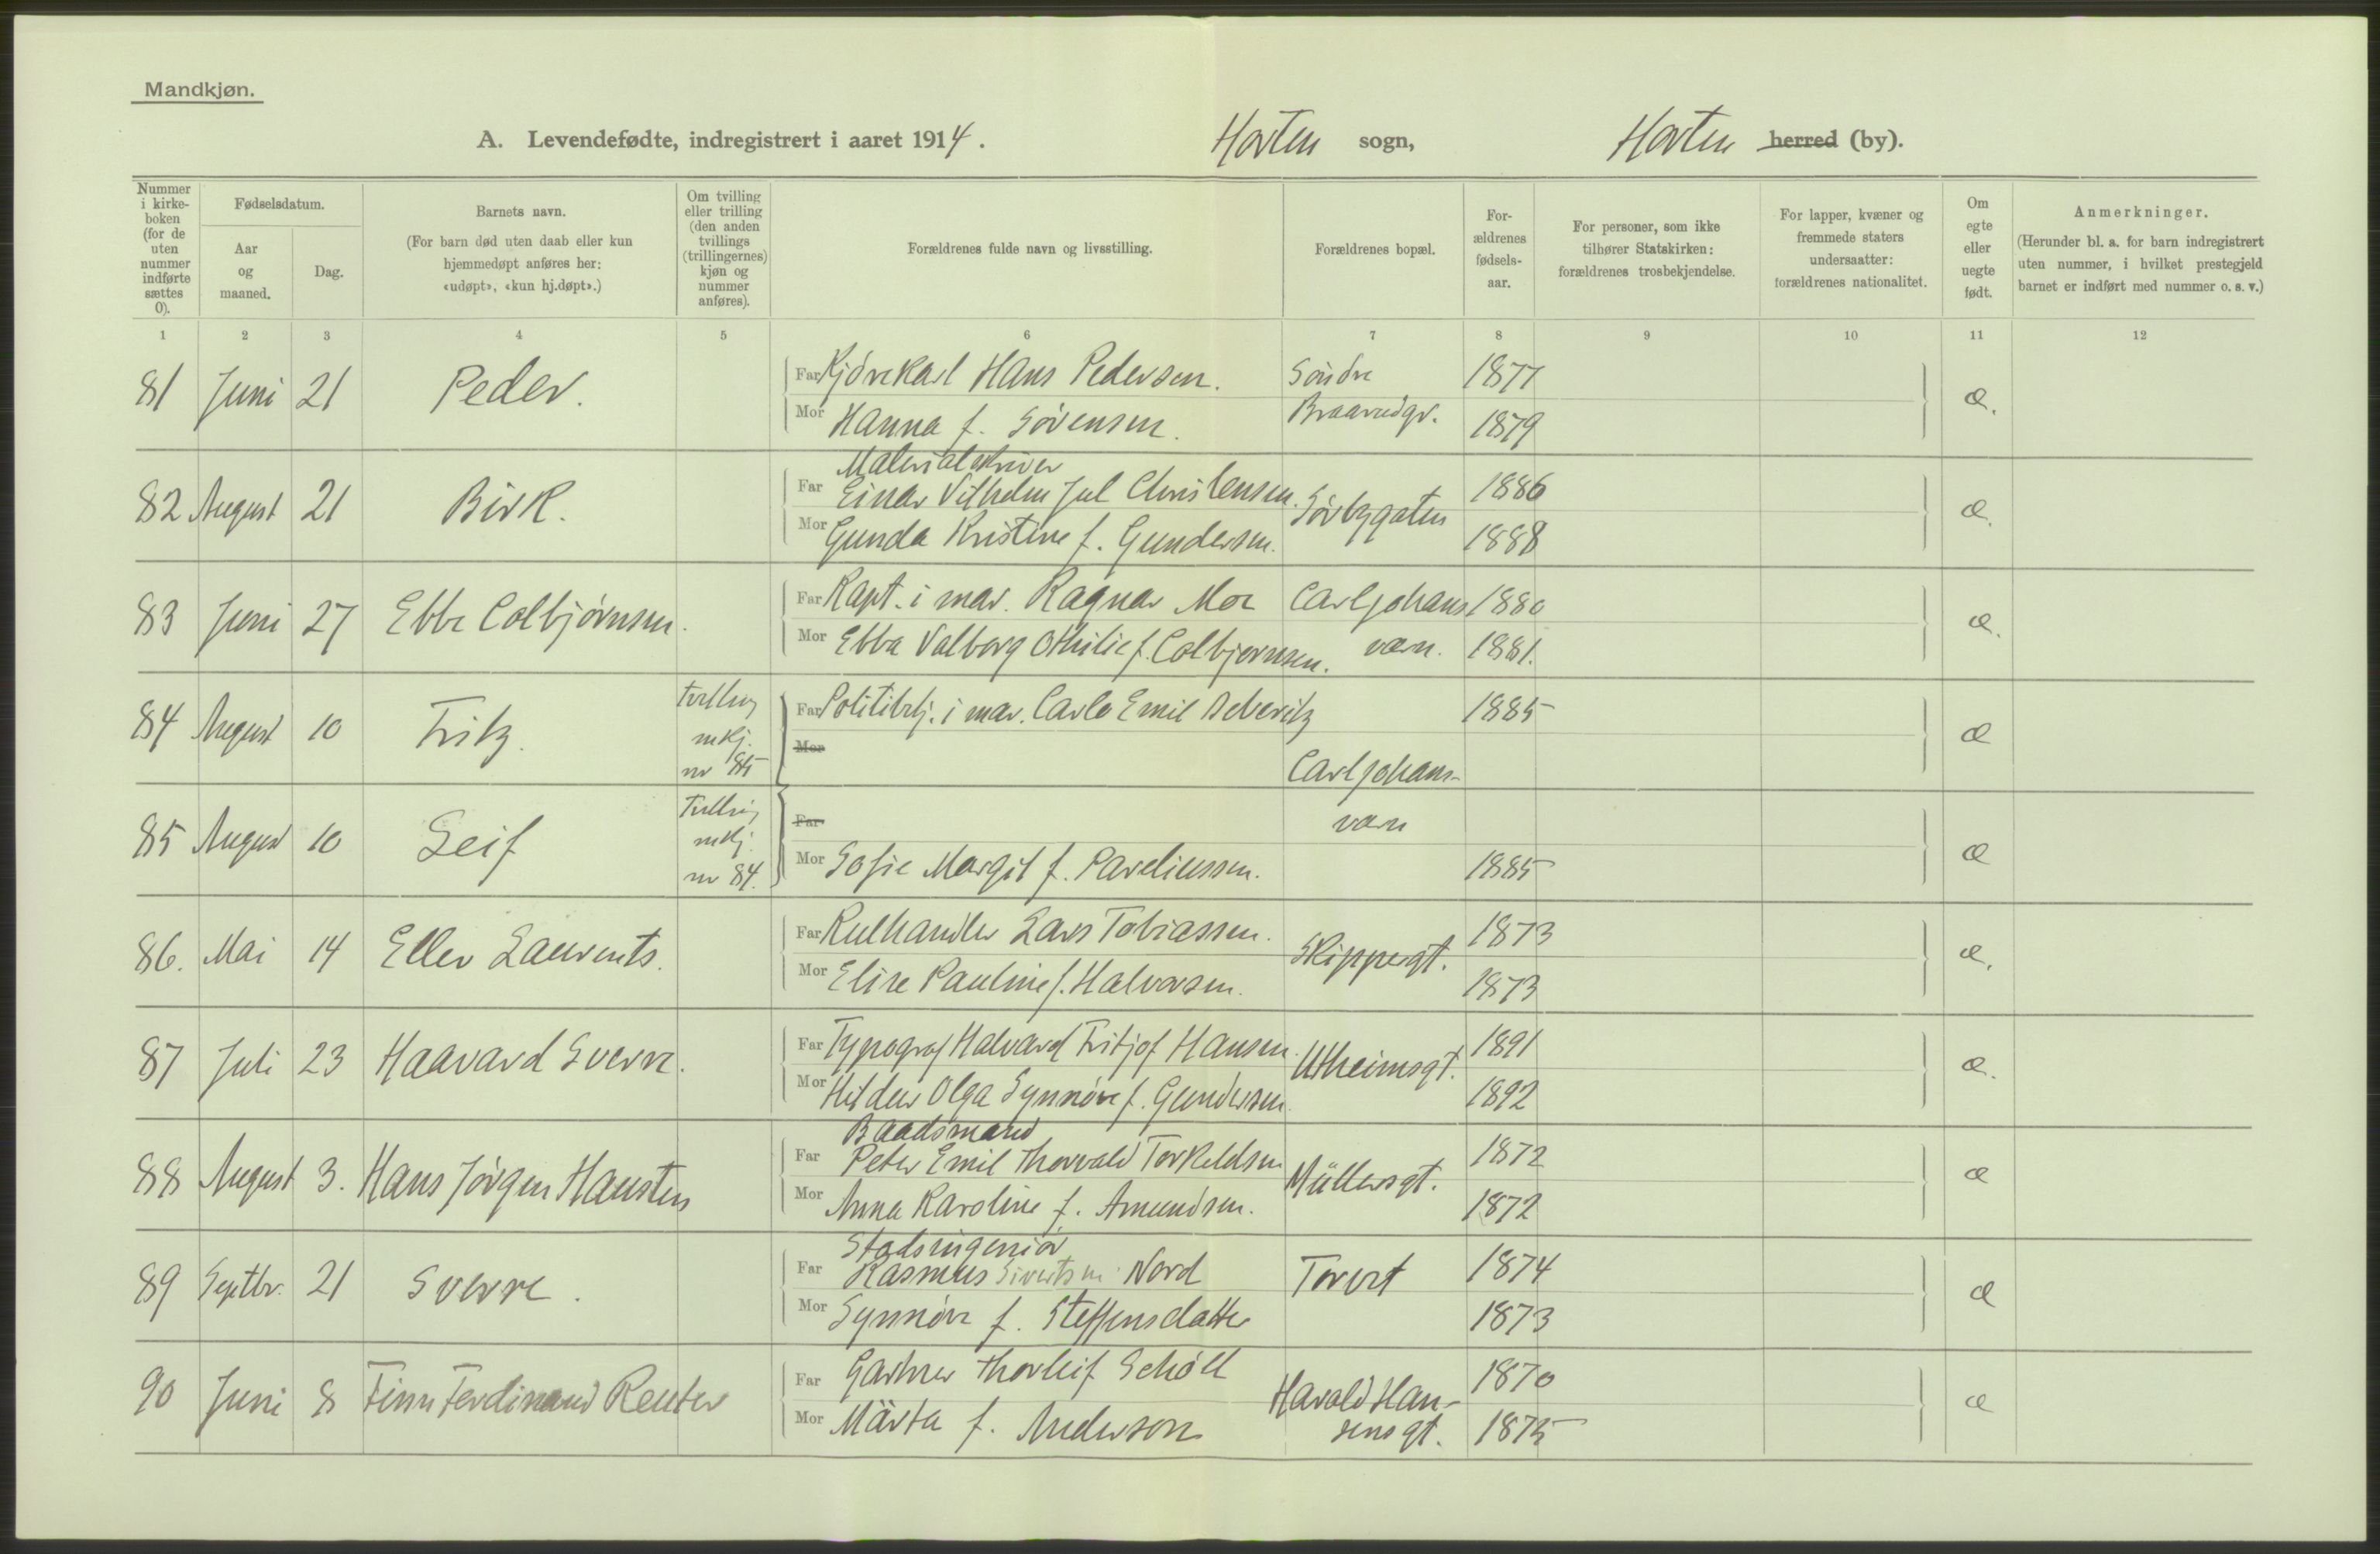 Mandkjøn.
A. Levendefødte, indregistrert i aaret 1914. Horten sogn, Horten herred (by).
Nummer i kirke-boken (for de uten nummer indførte sættes 0).
Fødselsdatum.
Aar og maaned.
Dag.
Barnets navn.
(For barn død uten daab eller kun hjemmedøpt anføres her: «udøpt», «kun hj.døpt».)
Om tvilling eller trilling (den anden tvillings (trillingernes) kjøn og nummer anføres).
Forældrenes fulde navn og livsstilling.
Forældrenes bopæl.
For-ældrenes fødsels-aar.
For personer, som ikke tilhører Statskirken: forældrenes trosbekjendelse.
For lapper, kvæner og fremmede staters undersaatter: forældrenes nationalitet.
Om egte eller uegte født.
Anmerkninger.
(Herunder bl. a. for barn indregistrert uten nummer, i hvilket prestegjeld barnet er indført med nummer o. s. v.)
1 2 3 4 5 6 7 8 9 10 11 12
81 Juni 21 Peder. Far Kjørekarl Hans Pedersen. Søndre 1877 æ.
Mor Hanna f. Sørensen. Braarudgt. 1879
Materialskriver
82 August 21 Birk. Far Einar Vilhelm Jul Christensen. Sørbygaten 1886 æ.
Mor Gunda Kristine f. Gundersen. 1888
83 Juni 27 Ebbe Colbjørnsen. Far Kapt. i mar. Ragnar Moe Carljohans 1880 æ.
Mor Ebba Valborg Othilie f. Colbjørnsen.værn. 1881.
84 August 10 Fritz. tvilling mkj. nr 85 Far Politibtj. i mar. Carlo Emil 1885 æ
Mor
Carljohans-
85 August 10 Leif Tvilling mkj. nr 84. Far værn æ
Mor Sofie Margit f. Paveliussen. 1885
86. Mai 14 Eller Laurents. Far Kulhandler Lars Tobiassen. Skippergt. 1873 æ.
Mor Elise Pauline f. Halvorsen. 1873
87 Juli 23 Haavard Sverre. Far Typograf Halvard Fritjof Hansen. Utheimsgt. 1891 æ.
Mor Hildur Olga Synnøve f. Gundersen 1892
Baadsmand
88 August 3. Hans Jørgen Hausten Far Peter Emil Thorvald Torkeldsen Müllersgt. 1872 æ
Mor Anna Karoline f. Amundsen. 1872
Stadsingeniør
89 Septbr. 21 Sverre. Far Rasmus Sivertsen Nord Torvet 1874 æ
Mor Synnøve f. Steffensdatter 1873
90 Juni 8 Finn Ferdinand Reuter Far Gartner Thorleif Schöll Harald Han- 1870 æ
Mor Märta f. Anderson sens gt. 1875